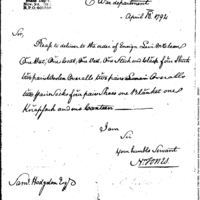 War department
April 18. 1794
Sir,
Please to deliver to the order of Ensign Levi McLean
One Hat, One Coat, One Vest, One Stock and Clasp four Shirts
two pairs Woolen Overalls two pairs Linnen Overalls
two pairs Socks four pairs Shoes one Blanket one
Knapsack and one Canteen
I am
Sir
your humble Servant
Saml. Hodgdon Esqr.